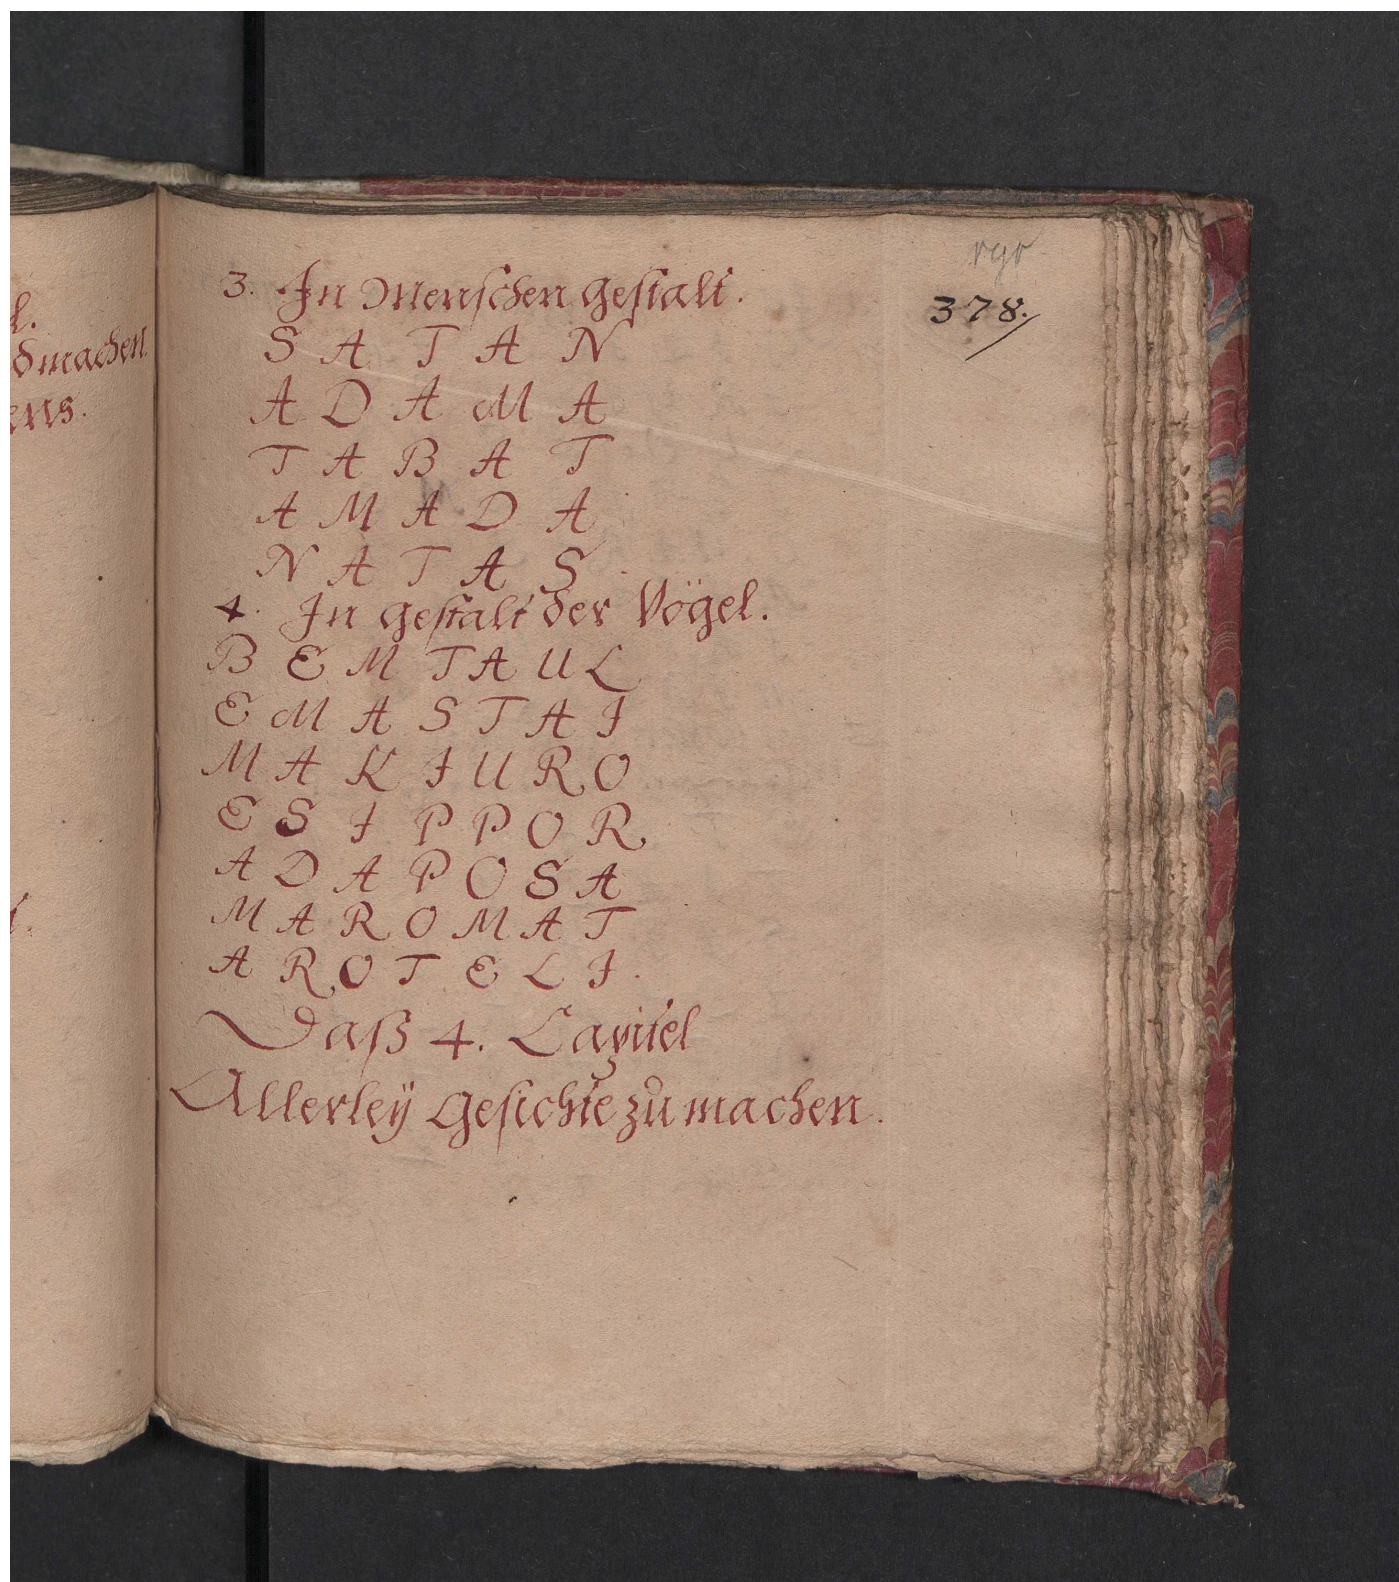 3. In Menschen gestalt.
378.
S A T A N
A D A M A
T A B A T
A M A D A
N A T A S
4. In gestalt der Vögel.
B E M T A U L
E M A S T A I
M A K I U R O
E S I P P O R
A D A P O S A
M A R O M A T
A R O T E L I.
Daß 4. Capitel
Allerleÿ Gesichte zu machen.
dmachen.